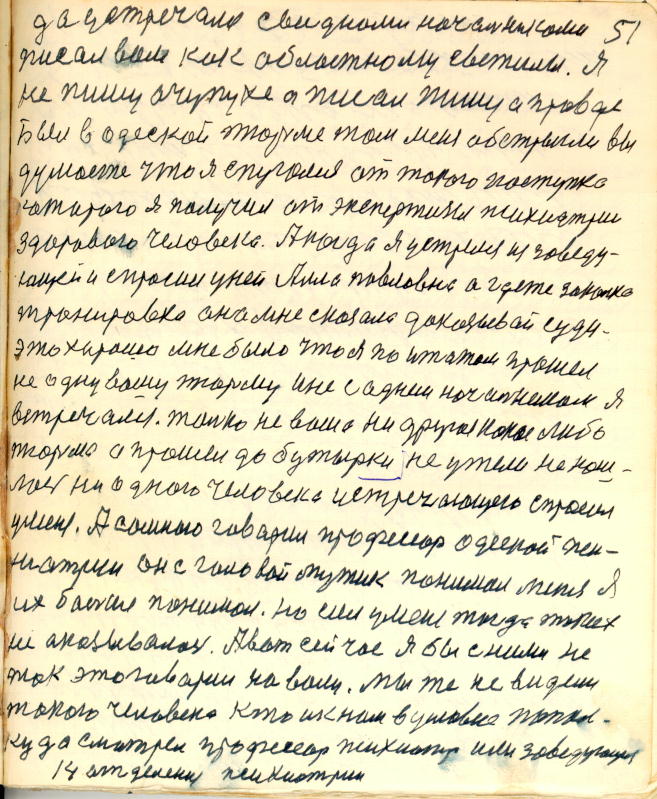 да устречался с видными начальниками 51
писал вам как областному светилы. Я
не пишу о чупухе а писал пишу о правде
Был в одеской тюрме там меня обстригли вы
думаете что я спугался от такого поступка
которого я получил от экспертизы психиатрии
здорового человека. А когда я устретил заведу-
ющей и спросил у ней Алла павловна а где те закалка
тренировка она мне сказала доказывай суду.
это хорошо мне было что я по итапам прошел
не одну вашу тюрму и не с адним начальником я
встречался. только не ваша ни другая какая либо
тюрма а прошел до бутырки не ужели не наш-
лось ни одного человека устречающего спросил
умень. А самною гаварил профессор одеской пси-
хиатрии он с галовой мужик понимал меня я
их баился понимал. но сил у меня тогда таких
не аказывалось. А вот сейчас я бы с ними не
так это гаварил на вали. мы же не видели
такого человека кто их нам
куда сматрел профессор психиатр или заведующая
14 отделения психиатрии